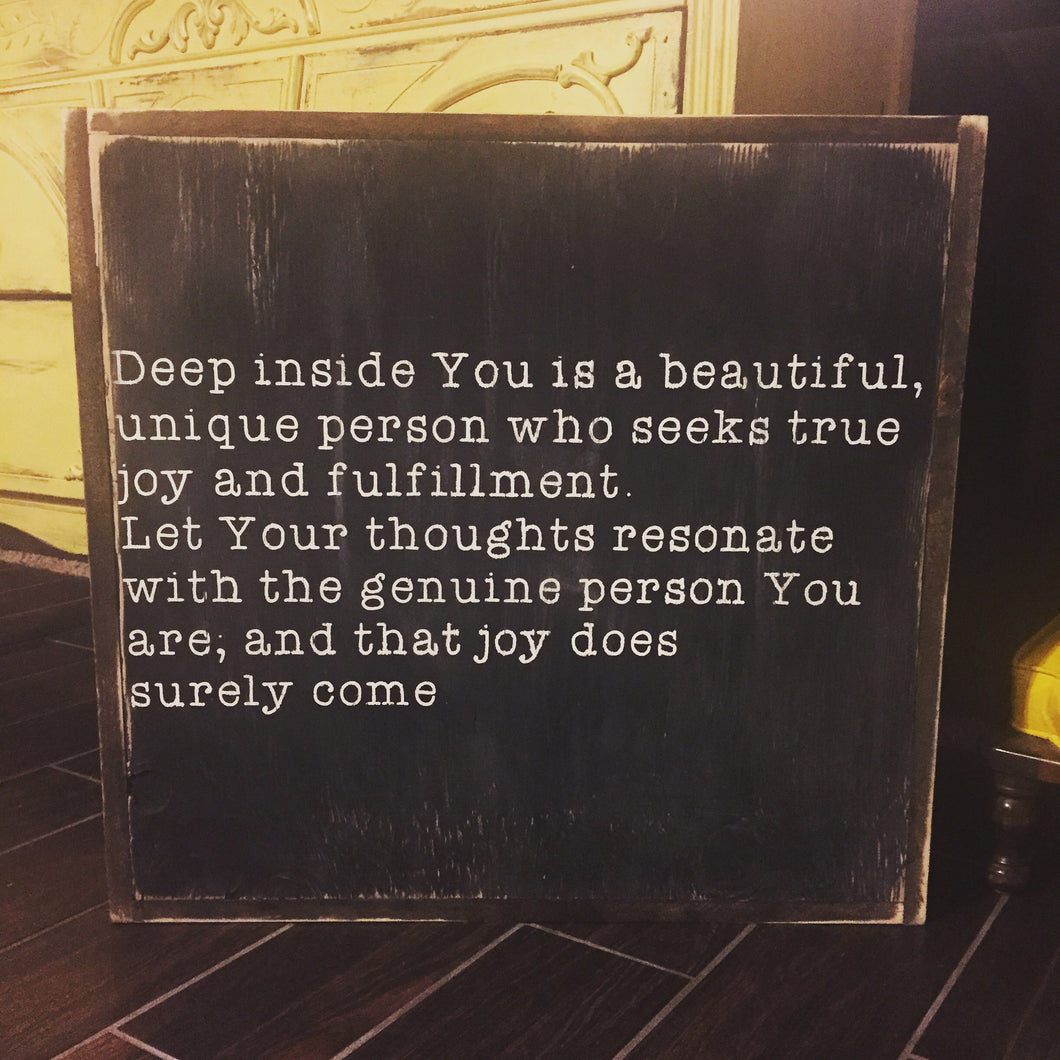 Deep inside You is a beautiful,
unique person who seeks true
joy and fulfillment.
Let Your thoughts resonate
with the genuine person You
are; and that joy does
surely come